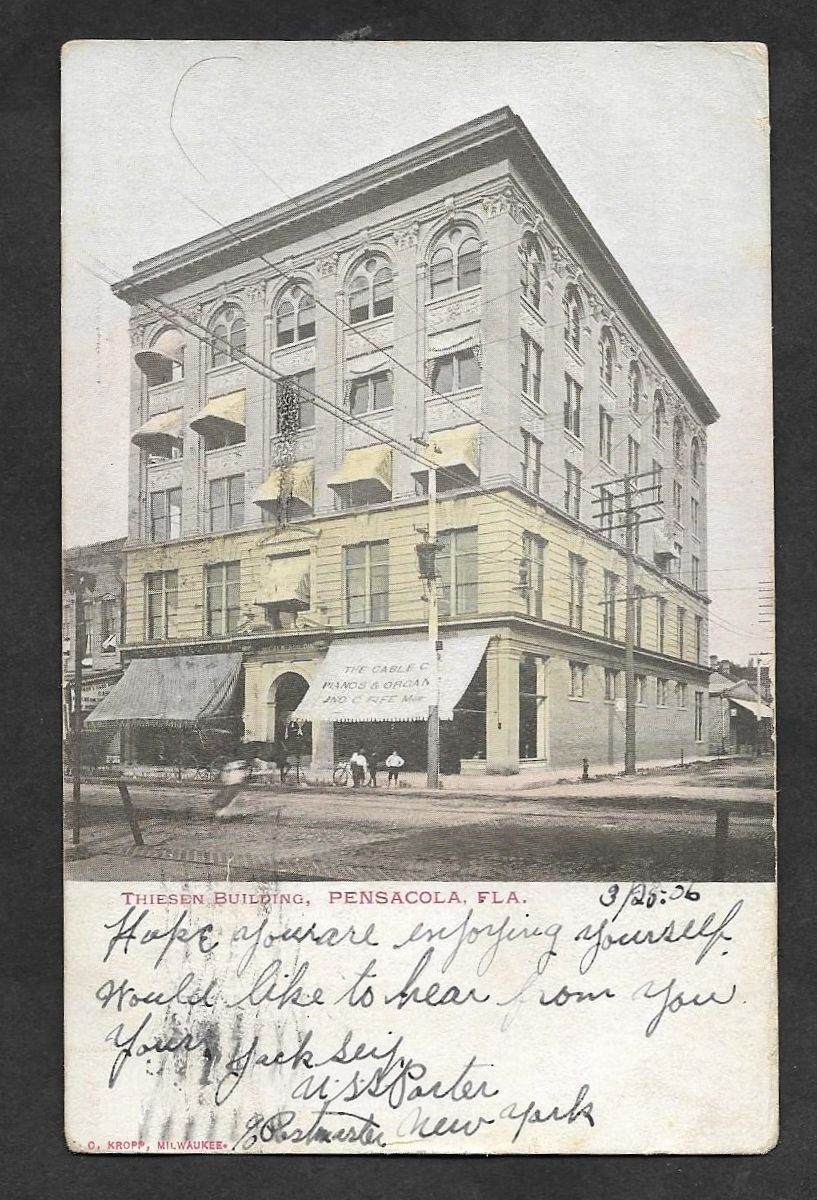 THE CABLE C
PIANOS & ORGANS
JNO C FIFE MGR
THIESEN BUILDING, PENSACOLA, FLA.
3/25.06
Hope you are enjoying yourself.
Would like to hear from you.
Yours,
Jack
USS Porter
c/o Postmaster New York
O. KROPP, MILWAUKEE.